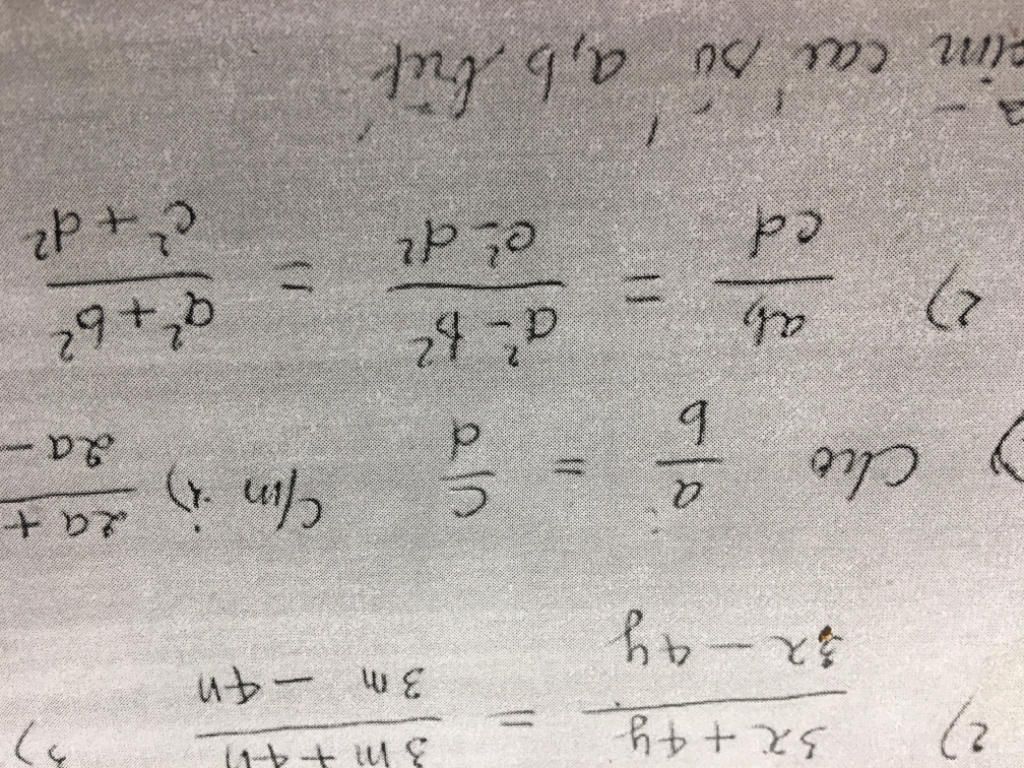 2) 3x + 4y / 3x - 4y = 3m + 4n / 3m - 4n 3)
) Cho a/b = c/d C/m 1) 2a + / 2a -
2) ab/cd = a² - b² / c² - d² = a² + b² / c² + d²
tìm các số a, b biết